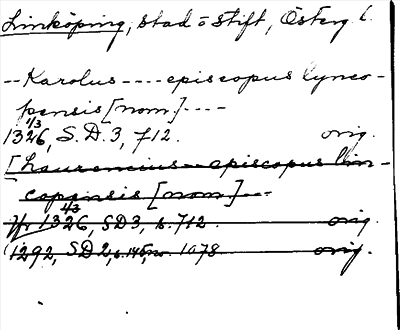 Linköping, stad o stift, Österg l.
--Karolus----episcopus lynco-
pensis [nom.]----
1/3
1326, S.D.3, 712. orig.
[Laurencius--episcopus lin-
copensis [nom]---
1/3
1326, SD3, s. 712 orig.
1292, SD2, s. 145, no. 1078 orig.